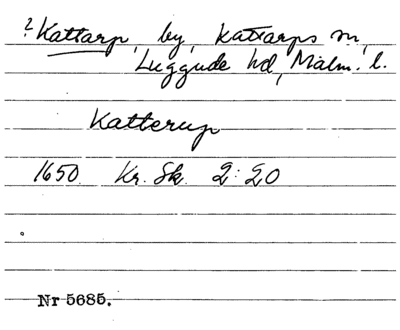 ? Kattarp, by, Kattarps sn,
Luggude hd, Malm. l.
Katterup
1650 Kr. Sk. 2:20
Nr 5685.